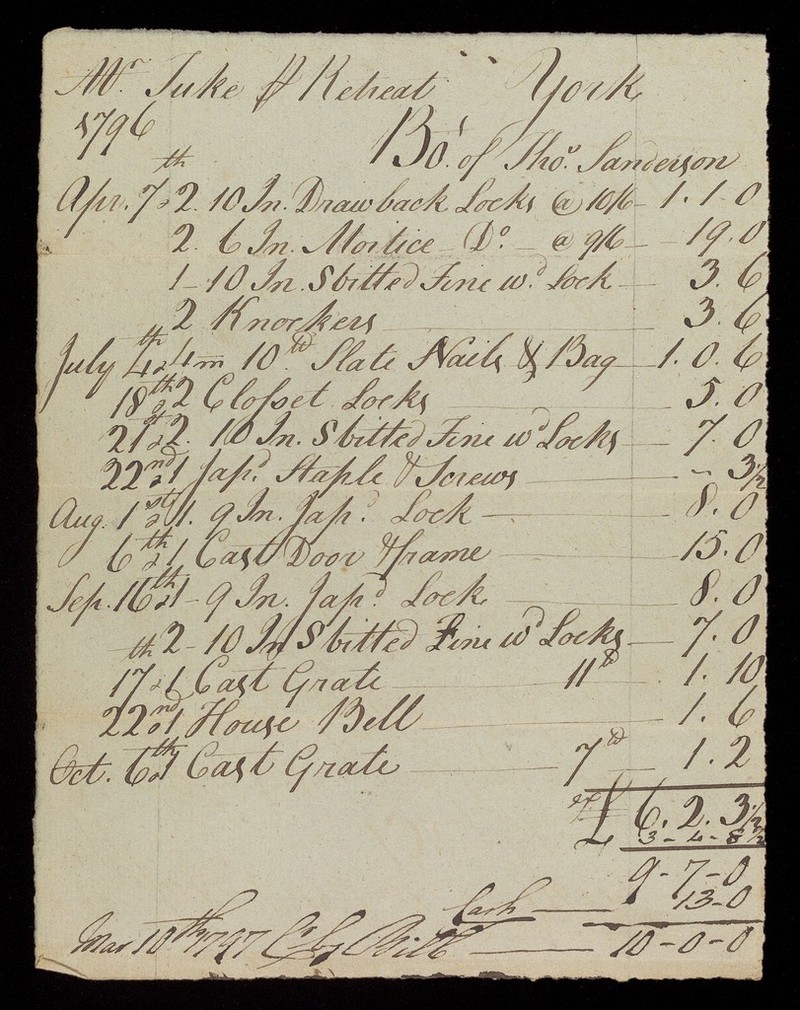 Mr. Tuke pr Retreat York
1796
Bot. of Thos. Sanderson
Apr. 7th 2. 10 In. Drawback Locks @ 10/6 1. 1. 0
2. 6 In. Mortice Do. @ 9/6 19. 0
1 - 10 In. S bitted Fine wd. Lock 3. 6
2 Knockers 3. 6
July 4th 4m 10 lb Slate Nails & Bag 1. 0. 6
18th 2 Closset Locks 5. 0
21st 2. 10 In. S bitted Fine wd Locks 7. 0
22nd 1 Japd. Staple & Screws - 3 1/2
Aug. 1st 1. 9 In. Japd. Lock 8. 0
6th 1 Cast Door & frame 15. 0
Sep. 16th 1 - 9 In. Japd. Lock 8. 0
2 - 10 In S bitted Fine wd Locks 7. 0
17th 1 Cast Grate 11 lb 1. 10
22nd 1 House Bell 1. 6
Oct. 6th 1 Cast Grate 7 lb 1. 2
£ 6. 2. 3 1/2
3 - 4 - 8 1/2
9 - 7 - 0
Cash 13 - 0
Mar 10th 1797 10 - 0 - 0